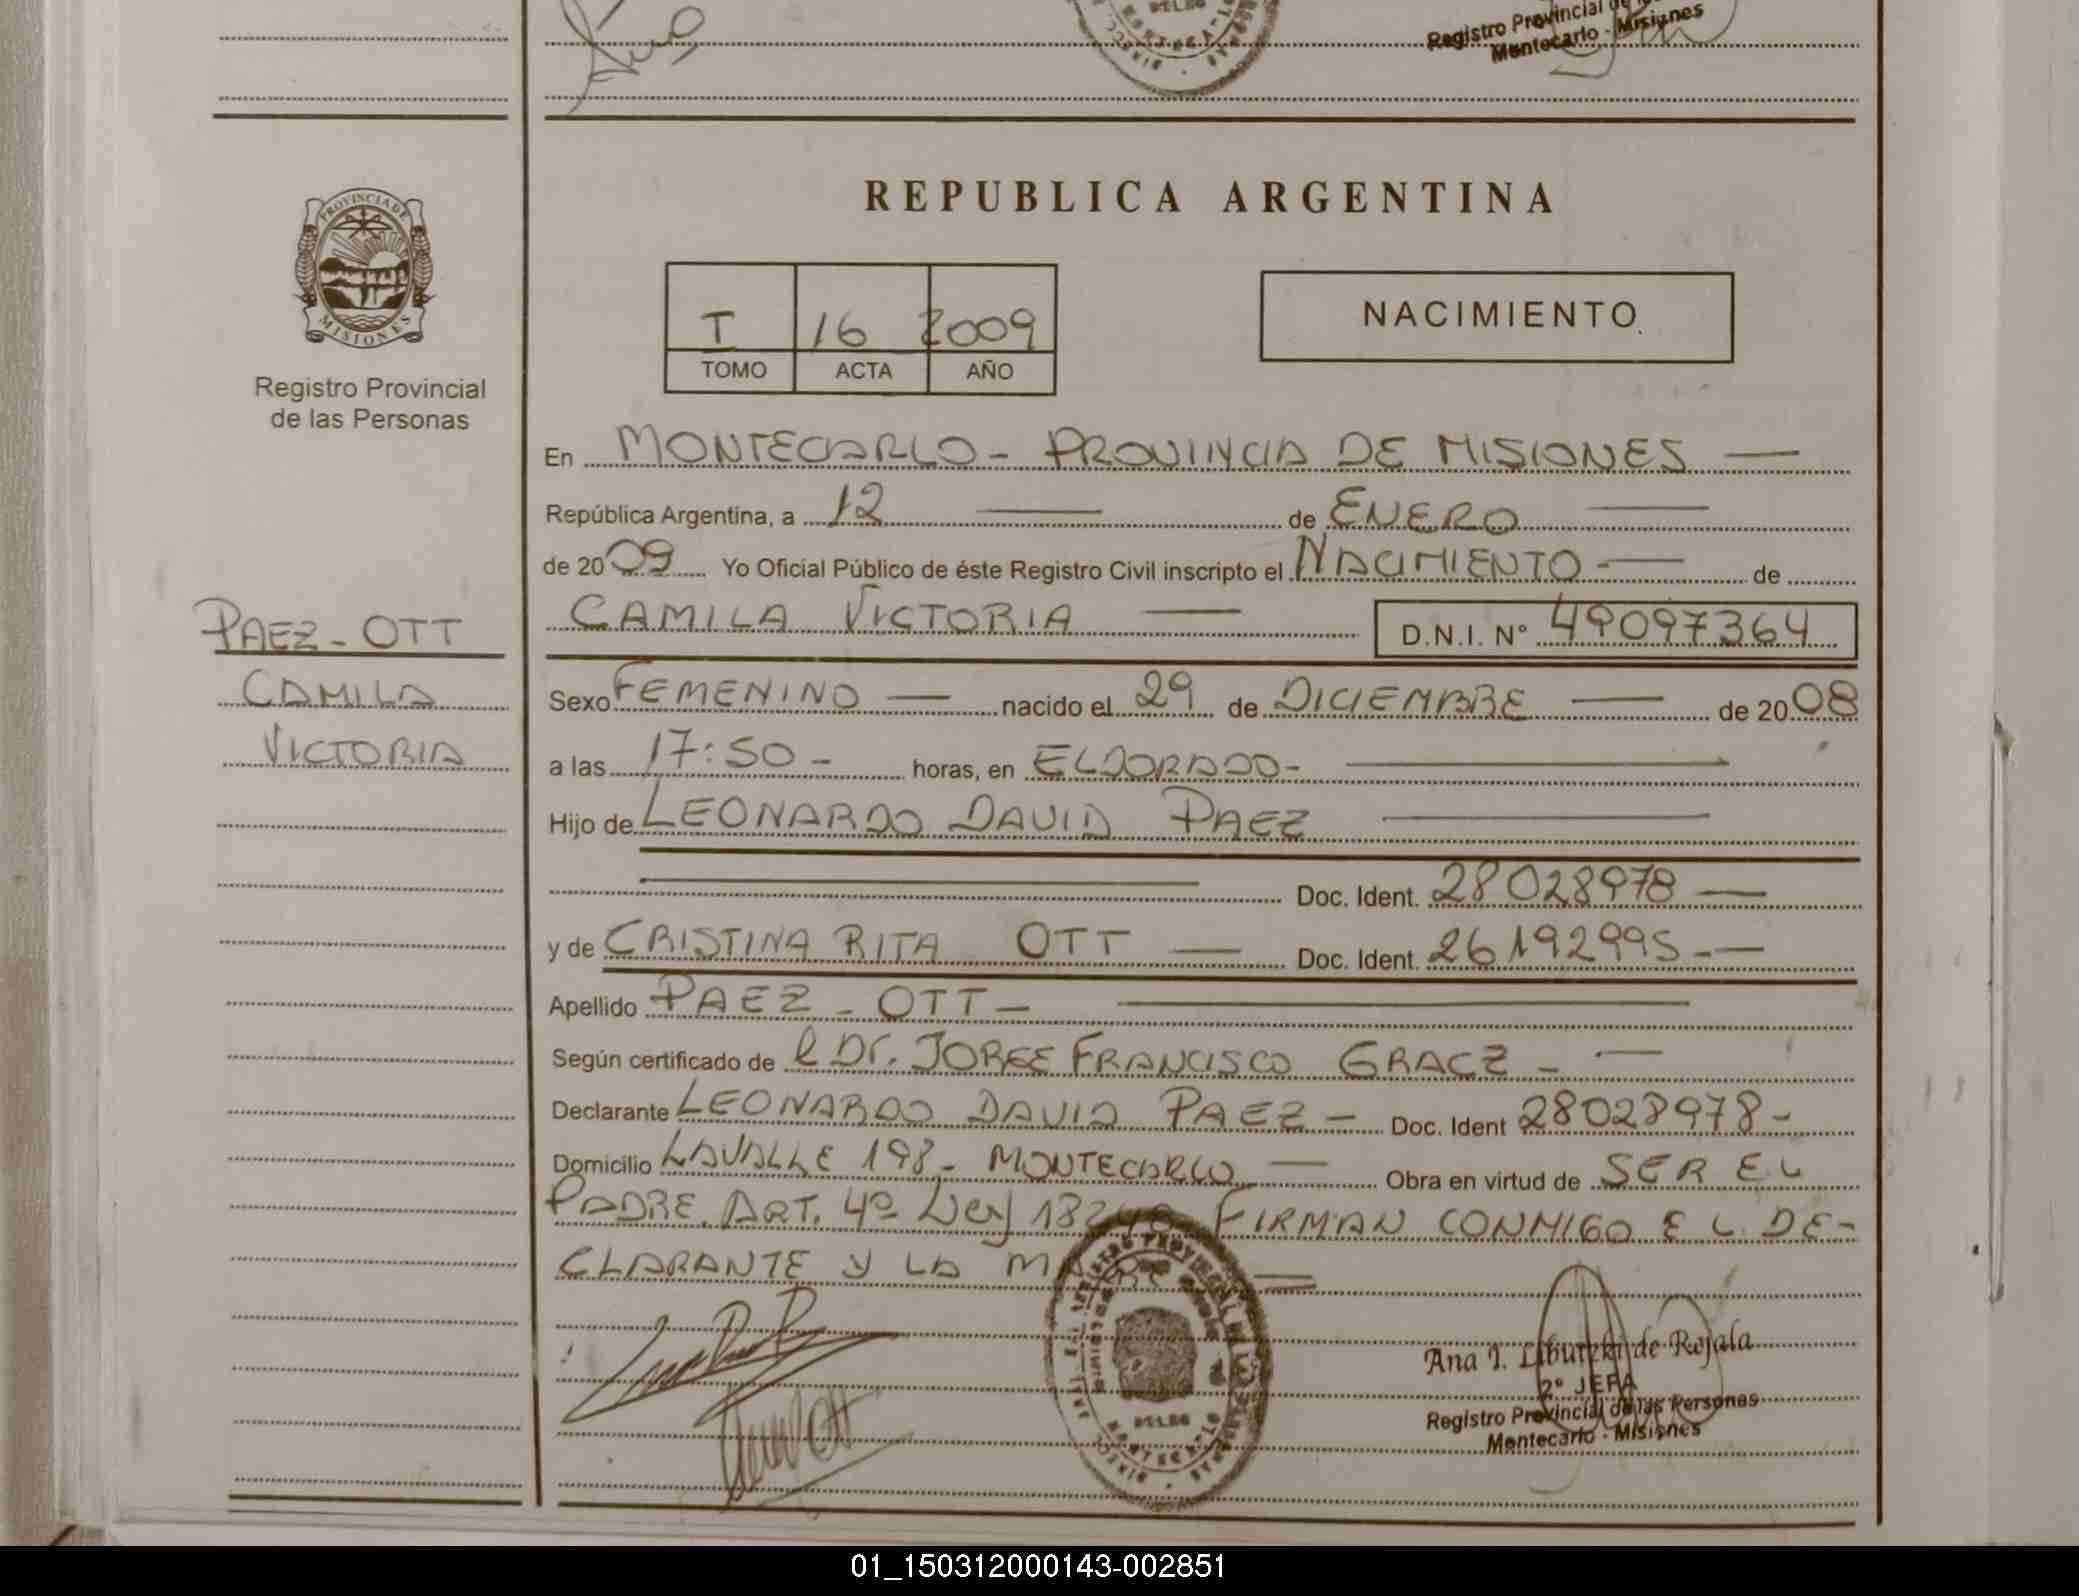 Registro Provincial de
Montecarlo - Misiones
PROVINCIA DE
MISIONES
Registro Provincial
de las Personas
REPUBLICA ARGENTINA
T 16 2009
TOMO ACTA AÑO
NACIMIENTO
En MONTECARLO - PROVINCIA DE MISIONES —
República Argentina, a 12 — de ENERO —
de 2009 Yo Oficial Público de éste Registro Civil inscripto el NACIMIENTO - — de
CAMILA VICTORIA — D.N.I. N° 49097364
PAEZ - OTT
CAMILA
VICTORIA
Sexo FEMENINO — nacido el 29 de DICIEMBRE — de 2008
a las 17:50 - horas, en ELDORADO - —
Hijo de LEONARDO DAVID PAEZ —
— Doc. Ident. 28028978 —
y de CRISTINA RITA OTT — Doc. Ident. 26192995 - —
Apellido PAEZ - OTT - —
Según certificado de l Dr. JORGE FRANCISCO GRACZ - —
Declarante LEONARDO DAVID PAEZ - Doc. Ident 28028978 -
Domicilio LAVALLE 198 - MONTECARLO — Obra en virtud de SER EL
PADRE. ART. 4º Ley 18248. FIRMAN CONMIGO EL DE-
CLARANTE Y LA MADRE —
Ana I. de Rojala
2° JEFA
Registro Provincial de las Personas
Montecarlo - Misiones
01_150312000143-002851